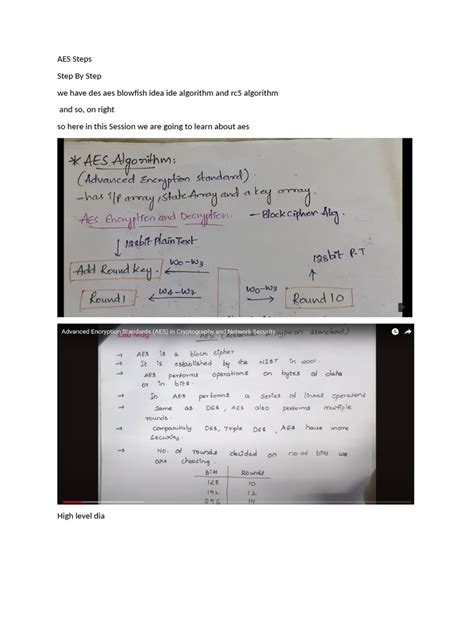 AES Steps
Step By Step
we have des aes blowfish idea ide algorithm and rc5 algorithm
and so, on right
so here in this Session we are going to learn about aes
* AES Algorithm:
(Advanced Encryption Standard)
- has i/p array, State Array and a key array.
AES Encryption and Decryption. - Block cipher Alg.
↓ 128bit Plain Text
128bit P.T
Add Round key W0-W3
Round 1 W4-W7 W0-W3 Round 10
Advanced Encryption Standards (AES) in Cryptography and Network Security
→ AES is a block cipher
→ It is established by the NIST in
→ AES performs operations on bytes of data
or in bits.
→ In AES performs a series of linked operations
→ Same as DES, AES also performs multiple
rounds.
→ Comparitively DES, Triple DES, AES have more
security.
→ No. of rounds decided on no. of bits we
are choosing.
Bits Rounds
128 10
192 12
256 14
High level dia